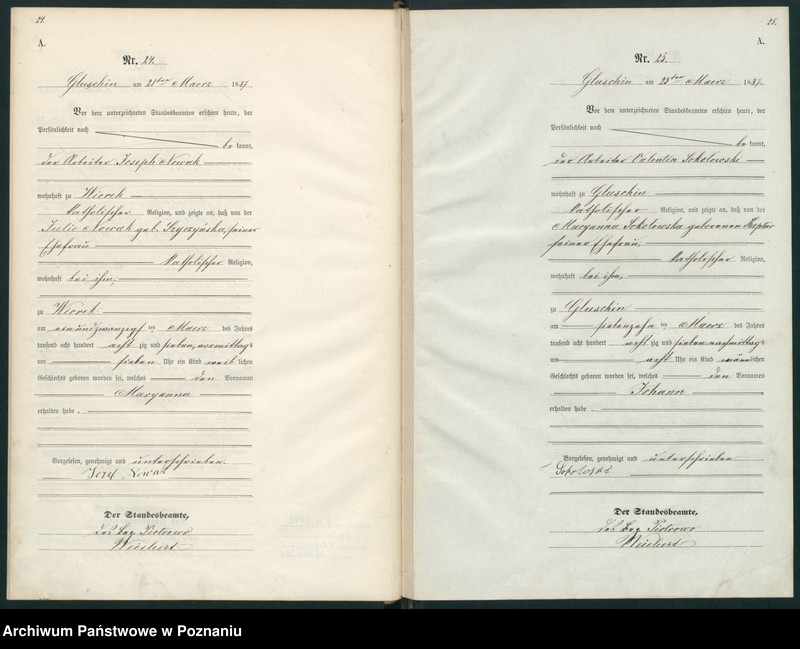 24.
A.
Nr. 24.
Gluschin am 21ten Maerz 1887
Vor dem unterzeichneten Standesbeamten erschien heute, der
Persönlichkeit nach
be kannt,
der Arbeiter Joseph Nowak
wohnhaft zu Wiorek
katholischer Religion, und zeigte an, daß von der
Julie Nowak geb. Szyczyńska, seiner
Ehefrau
katholischer Religion,
wohnhaft bei ihm,
zu Wiorek
am einundzwanzigsten Maerz des Jahres
tausend acht hundert acht zig und sieben, vormittags
um sieben Uhr ein Kind weib lichen
Geschlechts geboren worden sei, welches den Vornamen
Maryanna
erhalten habe.
Vorgelesen, genehmigt und unterschrieben.
Józef Nowak
Der Standesbeamte,
des Bez. Piotrowo
25.
A.
Nr. 25.
Gluschin am 23ten Maerz 1887.
Vor dem unterzeichneten Standesbeamten erschien heute, der
Persönlichkeit nach
be kannt,
der Arbeiter Valentin Sokolowski
wohnhaft zu Gluschin
katholischer Religion, und zeigte an, daß von der
Maryanna Sokolowska geborenen
seiner Ehefrau,
katholischer Religion,
wohnhaft bei ihm,
zu Gluschin
am siebenzehn ten Maerz des Jahres
tausend acht hundert acht zig und sieben nachmittags
um acht Uhr ein Kind männlichen
Geschlechts geboren worden sei, welches den Vornamen
Johann
erhalten habe.
Vorgelesen, genehmigt und unterschrieben.
Der Standesbeamte,
des Bez. Piotrowo
Archiwum Państwowe w Poznaniu